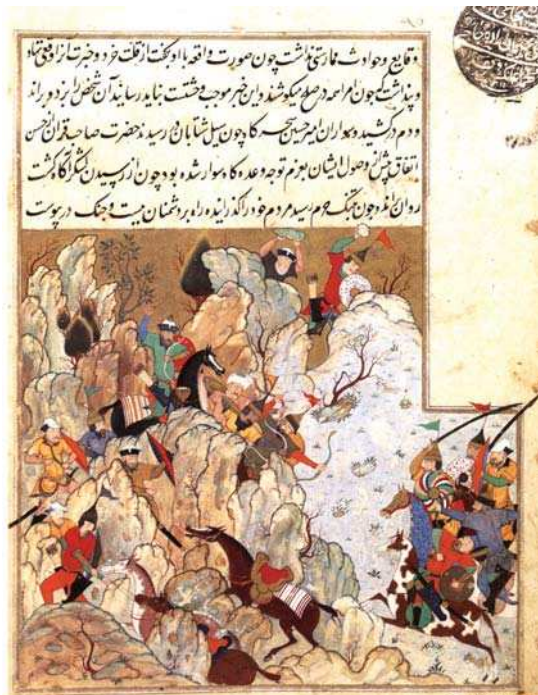 وقایع و حوادث ممارستی نداشت چون صورت واقعه با او بگفت از قلت خرد و خبرت آنرا وقعی ننهاد
و پنداشت که چون امرا همه در صلح میکوشند و این خبر موجب وحشتست نباید رسانید آن شخص را بزد و براند
و دم در کشید و سواران امیر حسین سحرگاه چون سیل شتابان در رسیدند حضرت صاحب قران الحسن
اتفاق پیش از وصول ایشان بعزم توجه وعده گاه سوار شده بود چون از رسیدن لشکر آگاه گشت
روان براند و چون بتنگ حرم رسید مردم خود را گذرانیده راه بر دشمنان بست و جنک در پیوست